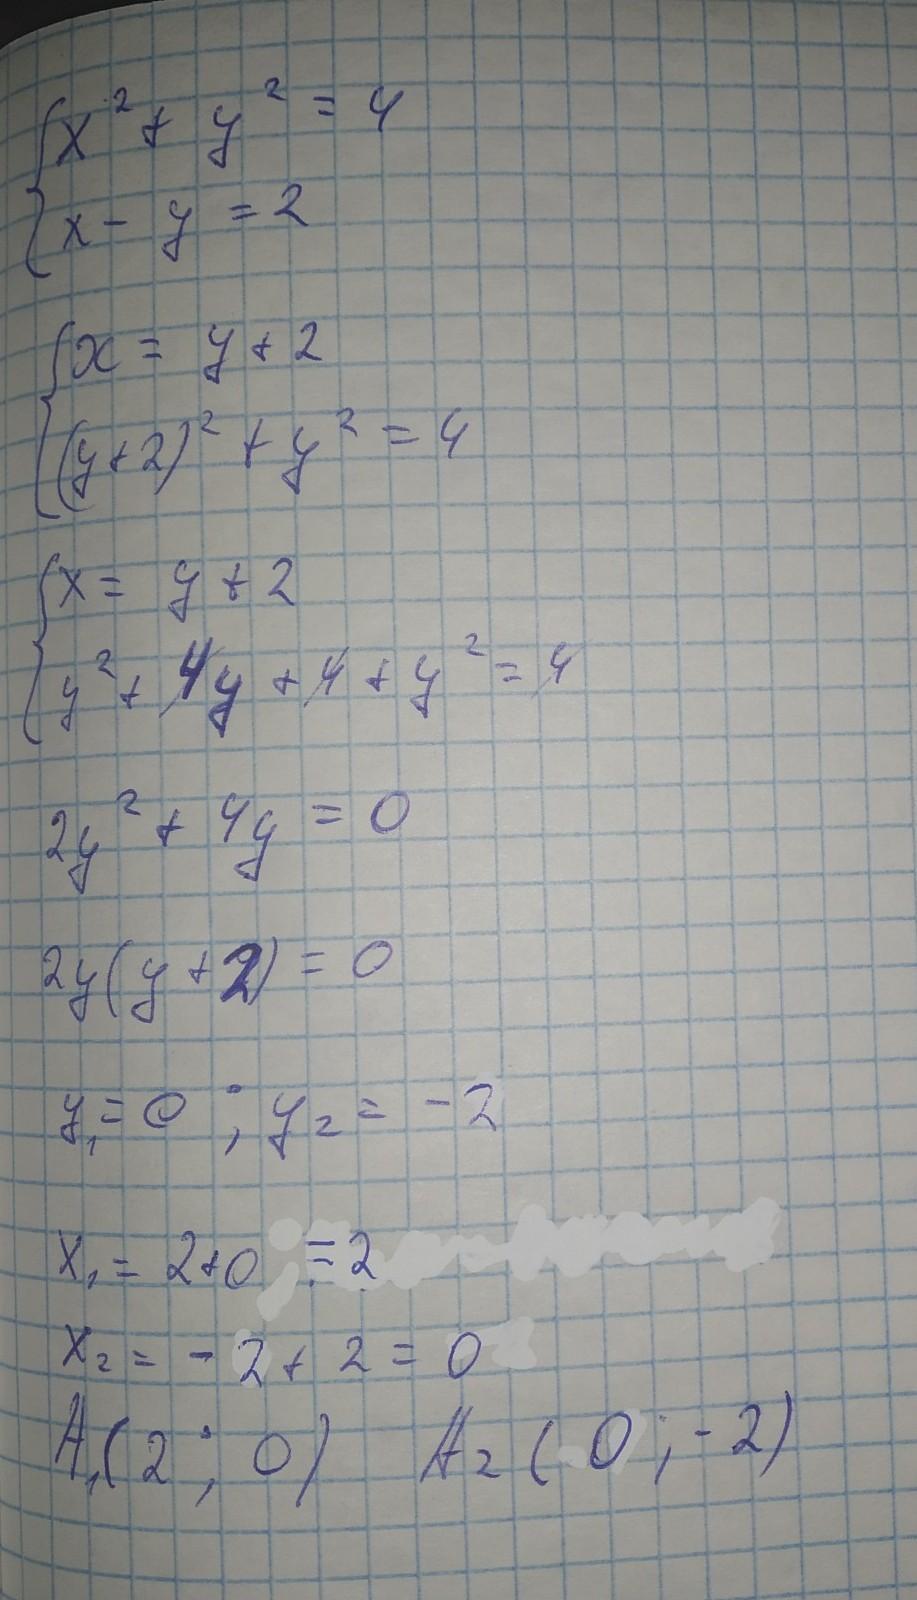 x² + y² = 4
x - y = 2
x = y + 2
(y+2)² + y² = 4
x = y + 2
y² + 4y + 4 + y² = 4
2y² + 4y = 0
2y(y+2) = 0
y₁ = 0 ; y₂ = -2
x₁ = 2+0 = 2
x₂ = -2 + 2 = 0
A₁(2 ; 0) A₂(0 ; -2)